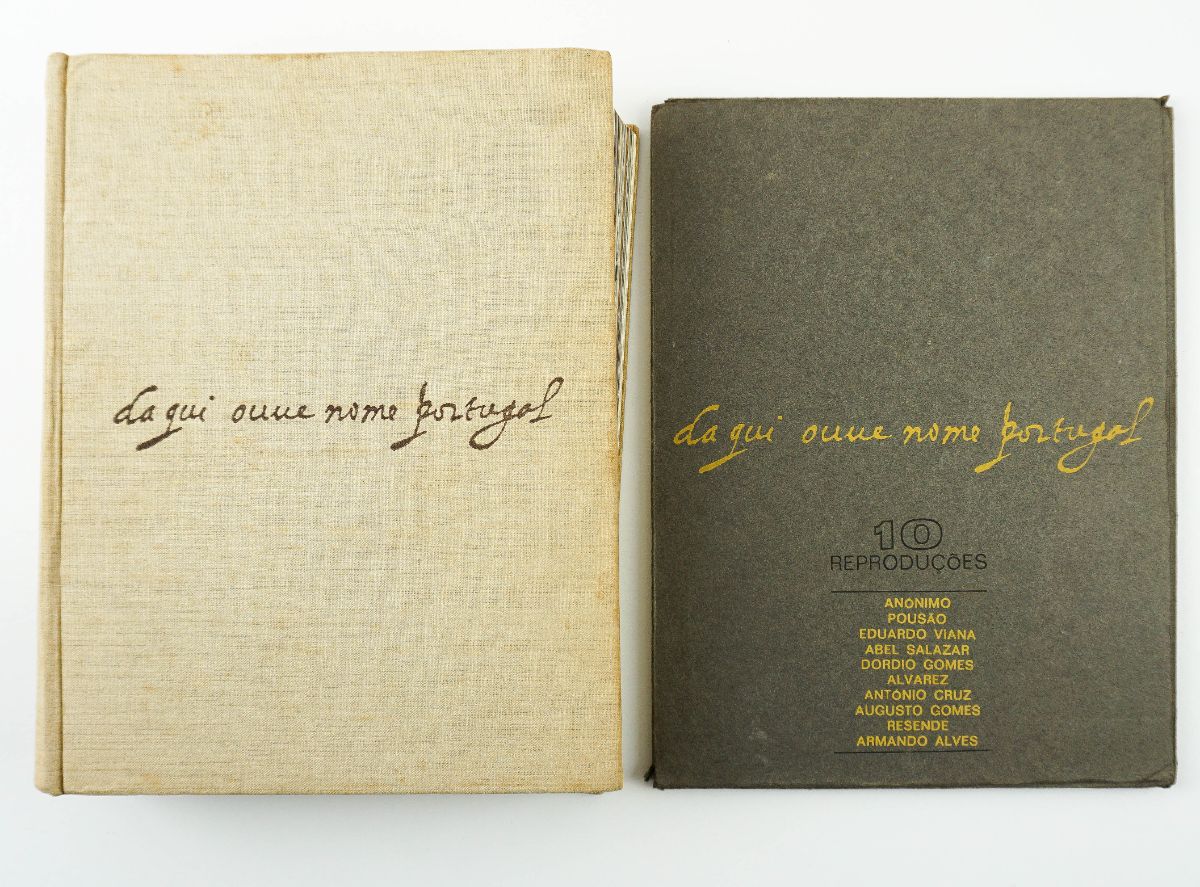 da qui ouue nome portugal
da qui ouue nome portugal
10
REPRODUÇÕES
ANÓNIMO
POUSÃO
EDUARDO VIANA
ABEL SALAZAR
DORDIO GOMES
ALVAREZ
ANTÓNIO CRUZ
AUGUSTO GOMES
RESENDE
ARMANDO ALVES